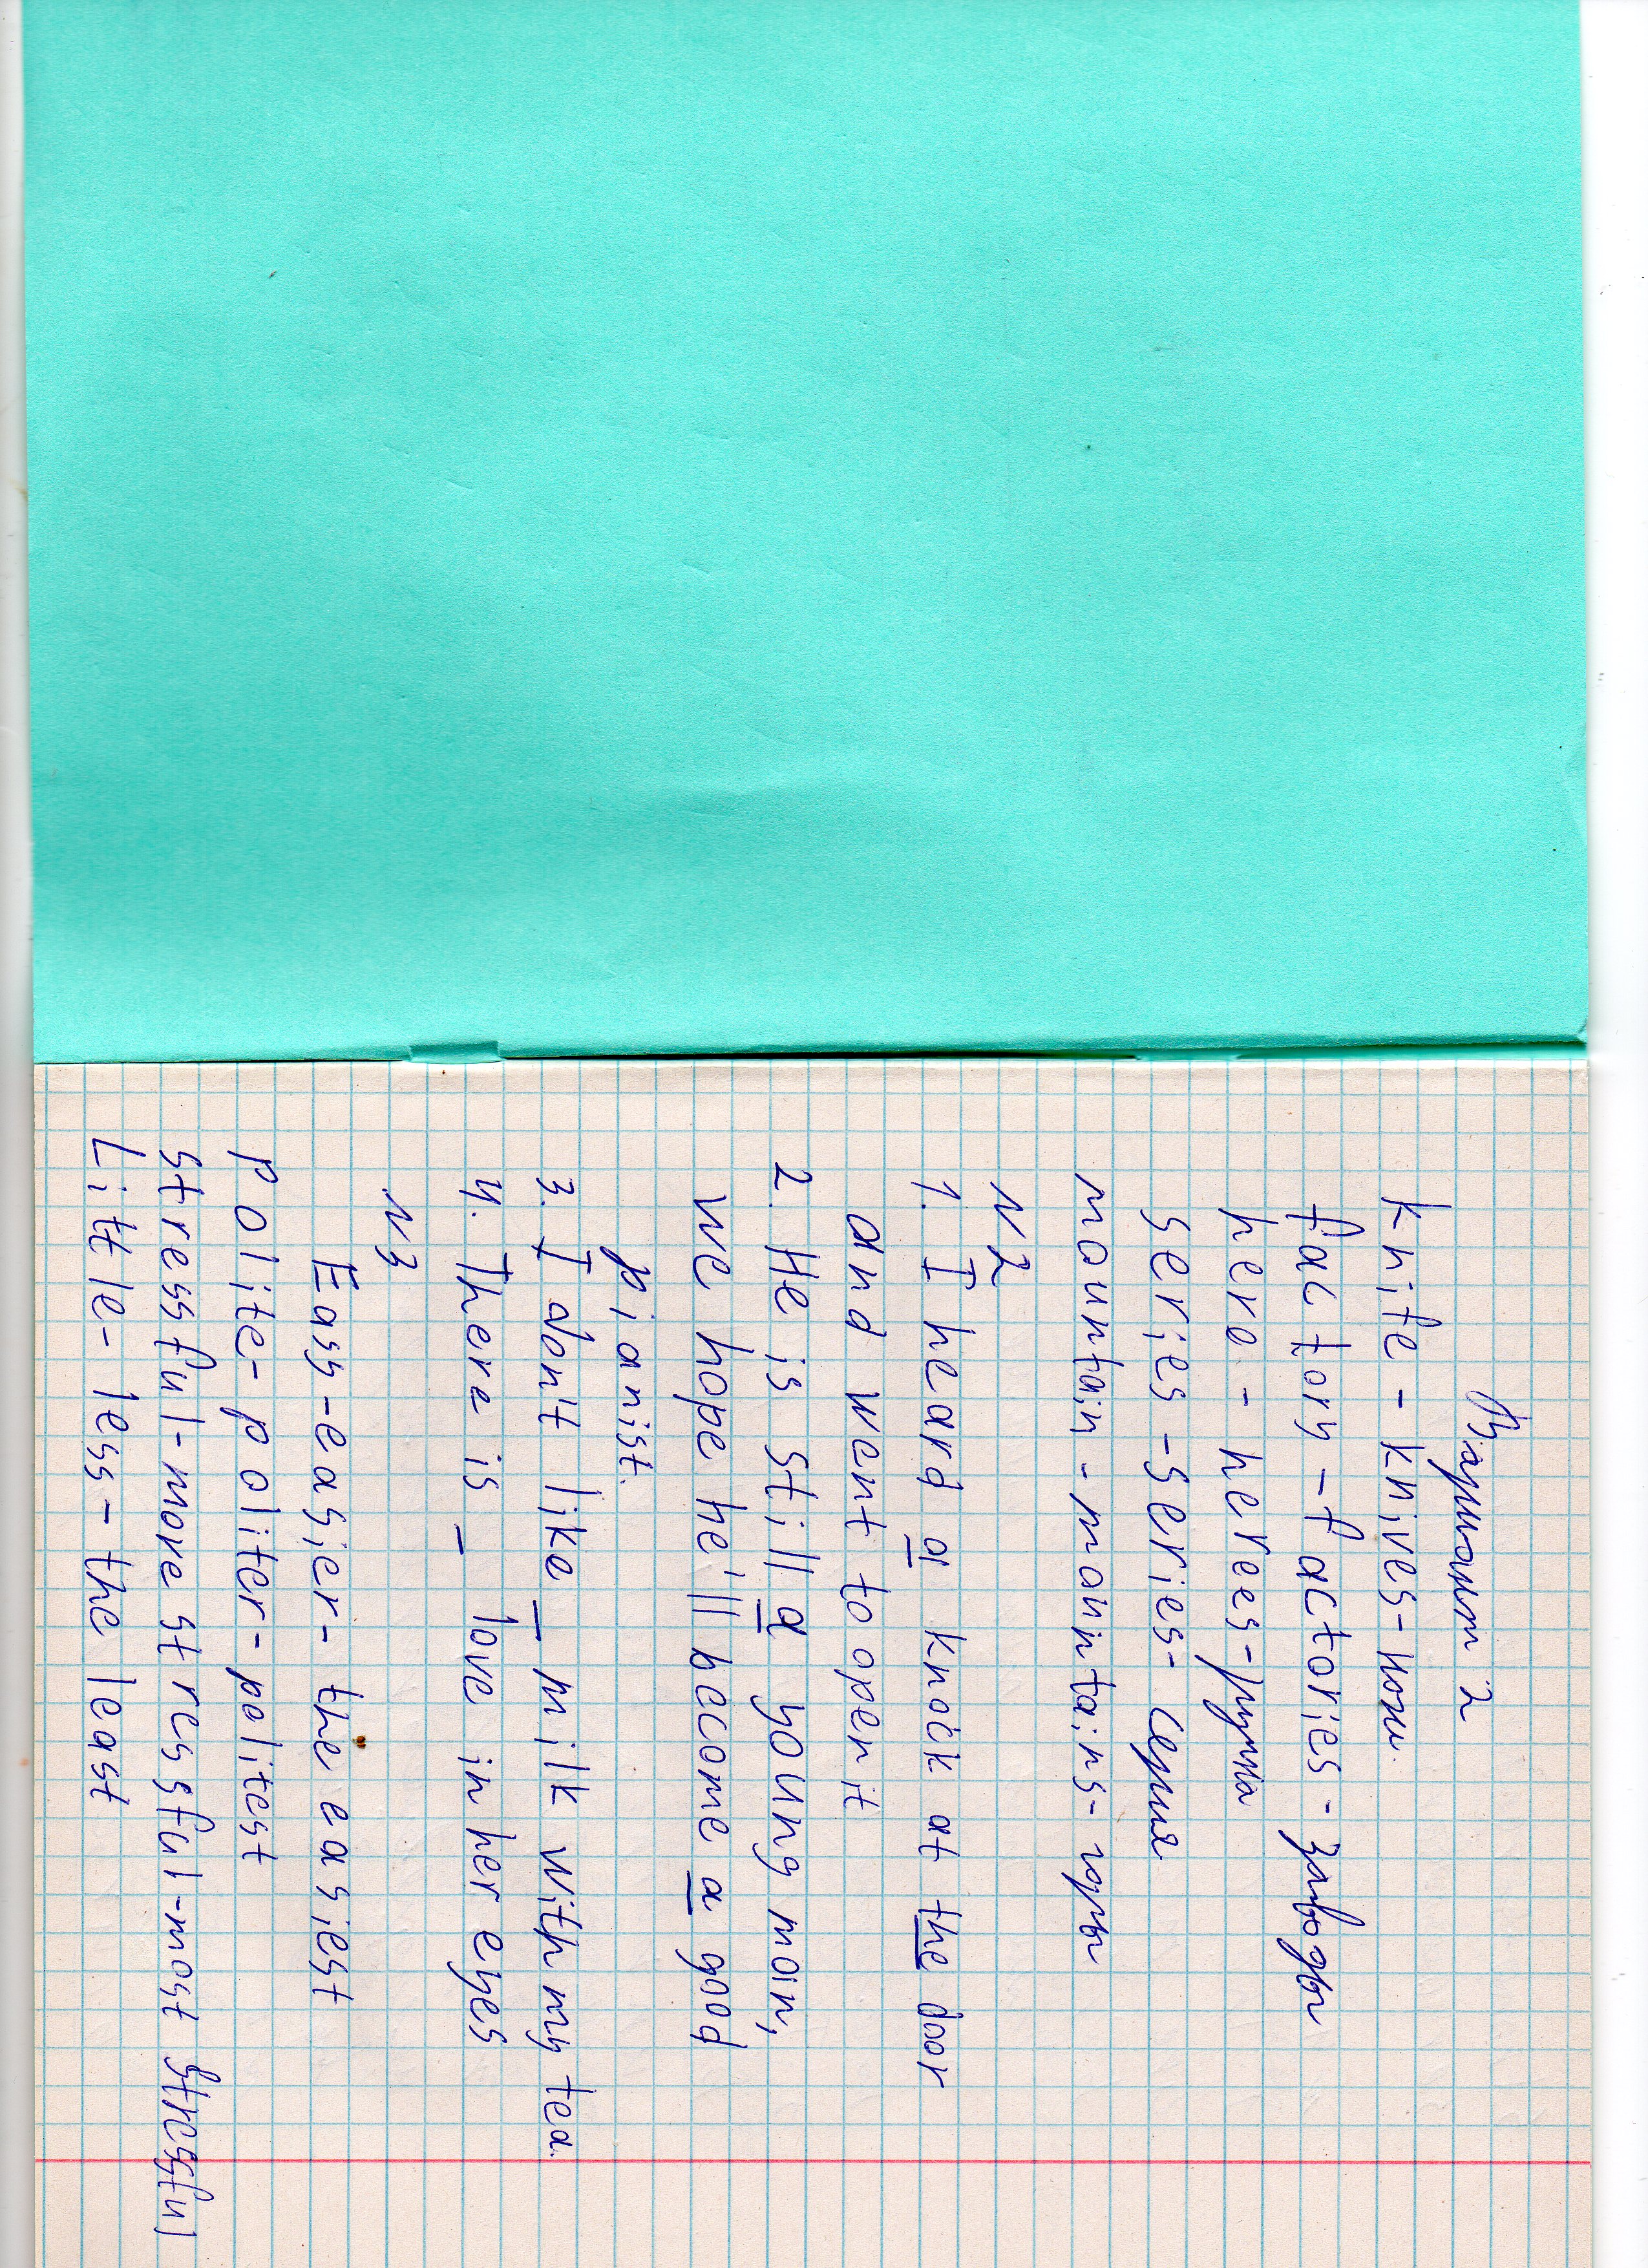 Вариант 2
knife - knives - ножи.
factory - factories - заводы
here - herees -
series - series - серия
mountain - mountains - горы
N2
1. I heard a knock at the door
and went to open it
2. He is still a young man,
we hope he'll become a good
pianist.
3. I don't like _ milk with my tea.
4. There is _ love in her eyes
N3
Easy - easier - the easiest
polite - politer - politest
stressful - more stressful - most stressful
Little - less - the least